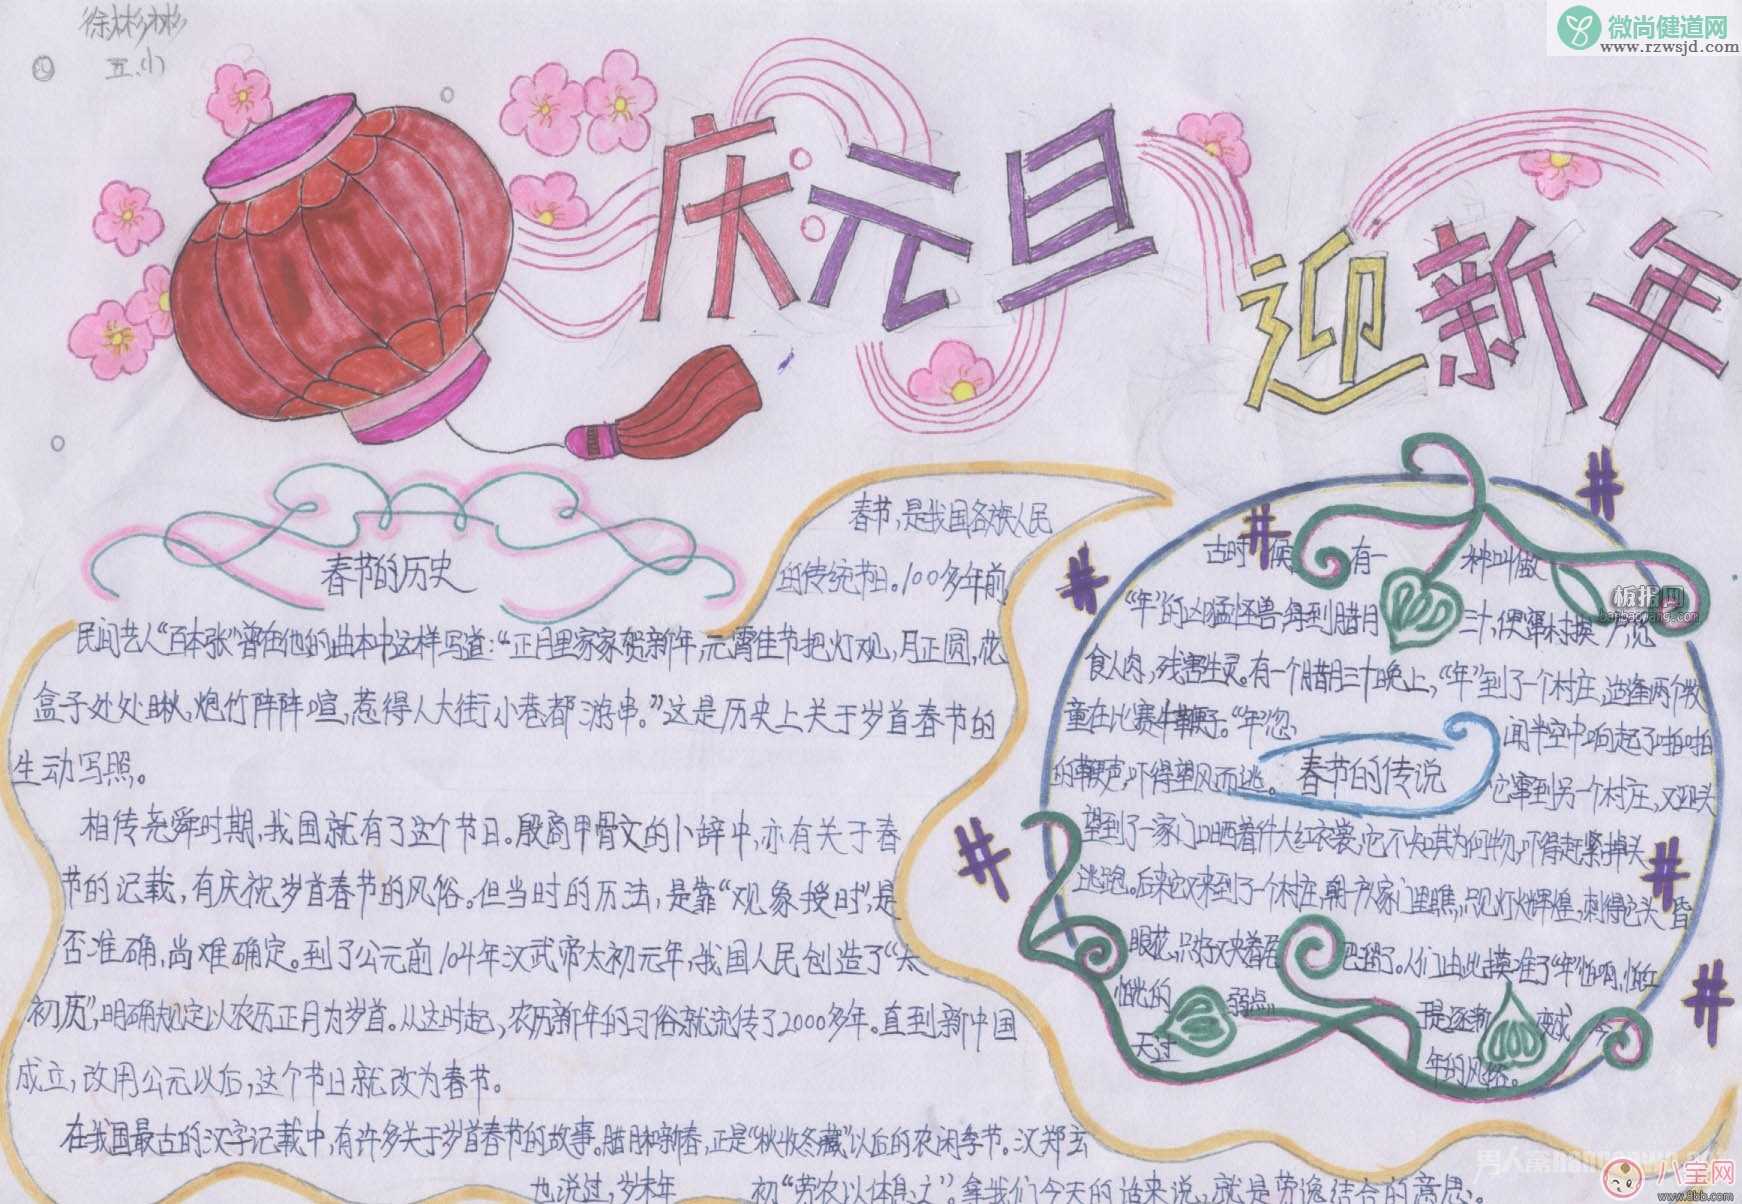 徐彬彬
五.小
微尚健道网
www.rzwsjd.com
庆元旦
迎新年
春节的历史
春节,是我国各族人民
的传统节日。100多年前,
民间艺人“百本张”曾在他的曲本中这样写道:“正月里家家贺新年,元宵佳节把灯观,月正圆,花
盒子处处瞅,炮竹阵阵喧,惹得人大街小巷都游串。”这是历史上关于岁首春节的
生动写照。
相传尧舜时期,我国就有了这个节日。殷商甲骨文的卜辞中,亦有关于春
节的记载,有庆祝岁首春节的风俗。但当时的历法,是靠“观象授时”,是
否准确,尚难确定。到了公元前104年汉武帝太初元年,我国人民创造了“太
初历”,明确规定以农历正月为岁首。从这时起,农历新年的习俗就流传了2000多年。直到新中国
成立,改用公元以后,这个节日就改为春节。
在我国最古的汉字记载中,有许多关于岁首春节的故事。腊月和新春,正是“秋收冬藏”以后的农闲季节。汉郑玄
也说过,岁末年 初“劳农以休息之”。拿我们今天的话来说,就是劳逸结合的意思。
春节的传说
古时候 有一 种叫做
“年”的凶猛怪兽,每到腊月 三十,便窜村挨户,觅
食人肉,残害生灵。有一个腊月三十晚上,“年”到了一个村庄,适逢两个牧
童在比赛牛鞭子。“年”忽 闻半空中响起了啪啪
的鞭声,吓得望风而逃。 它窜到另一个村庄,又迎头
望到了一家门口晒着件大红衣裳,它不知其为何物,吓得赶紧掉头
逃跑。后来它又来到了一个村庄,朝一户人家门里瞧,只见灯火辉煌,刺得它头 昏
眼花,只好又夹着尾 巴溜了。人们由此摸准了“年”怕响,怕红
怕光的 弱点
于是逐渐 变成 今
天过
年的风俗。
板报网
banbaowang.com
男人窝nanrenwo.net
八宝网
www.8bb.com